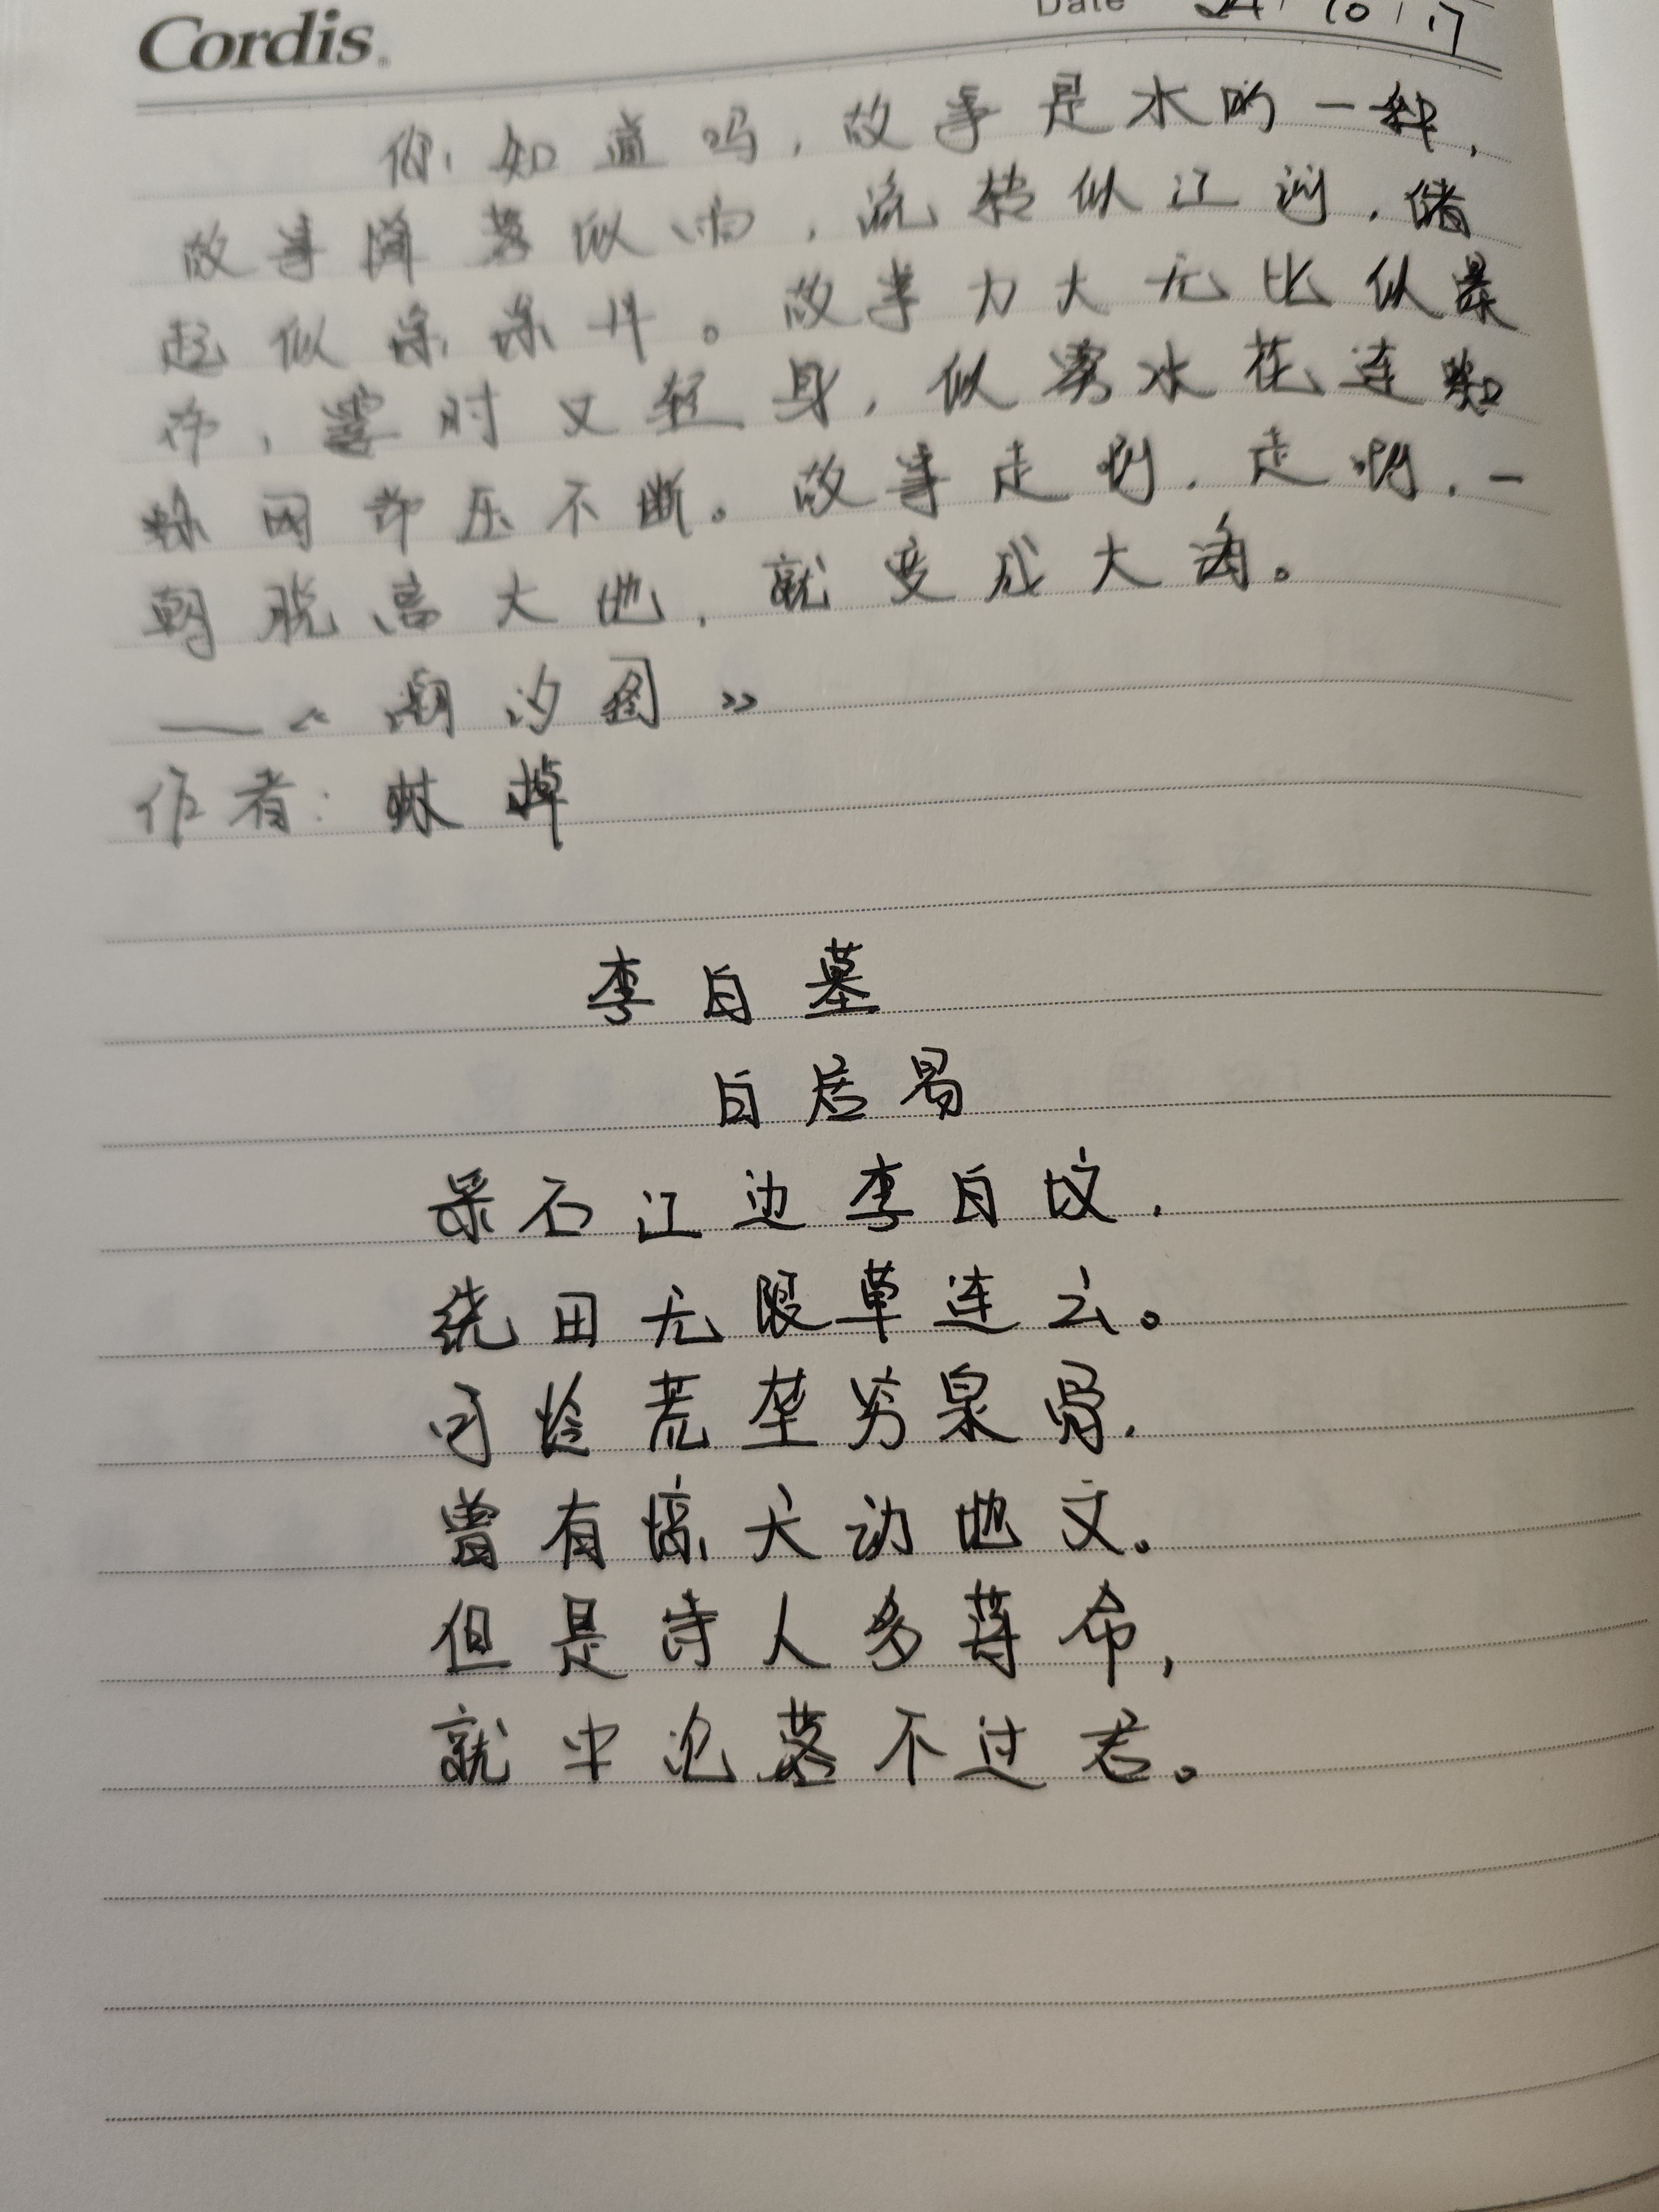 Cordis
Date 24/10/17
你知道吗，故事是水的一种，
故事降落似雨，流转似江河，储
起似深深井。故事力大无比似瀑
布，雾时又轻身，似雾水花连蜘
蛛网都压不断。故事走啊，走啊，一
朝脱离大地，就变成大海。
——《潮汐图》
作者：林棹
李白墓
白居易
采石江边李白坟，
绕田无限草连云。
可怜荒垄穷泉骨，
曾有惊天动地文。
但是诗人多薄命，
就中沦落不过君。